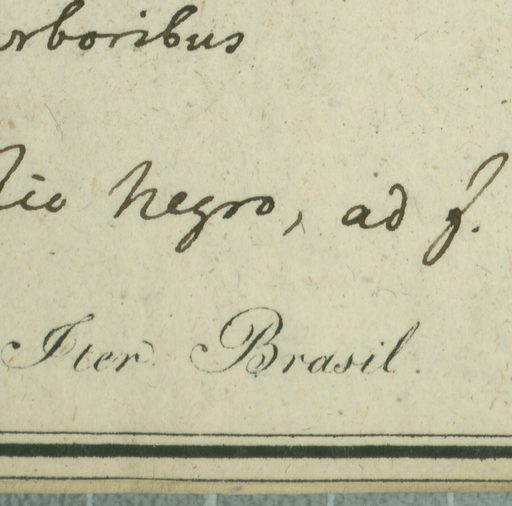 arboribus
Rio Negro, ad f.
Iter Brasil.